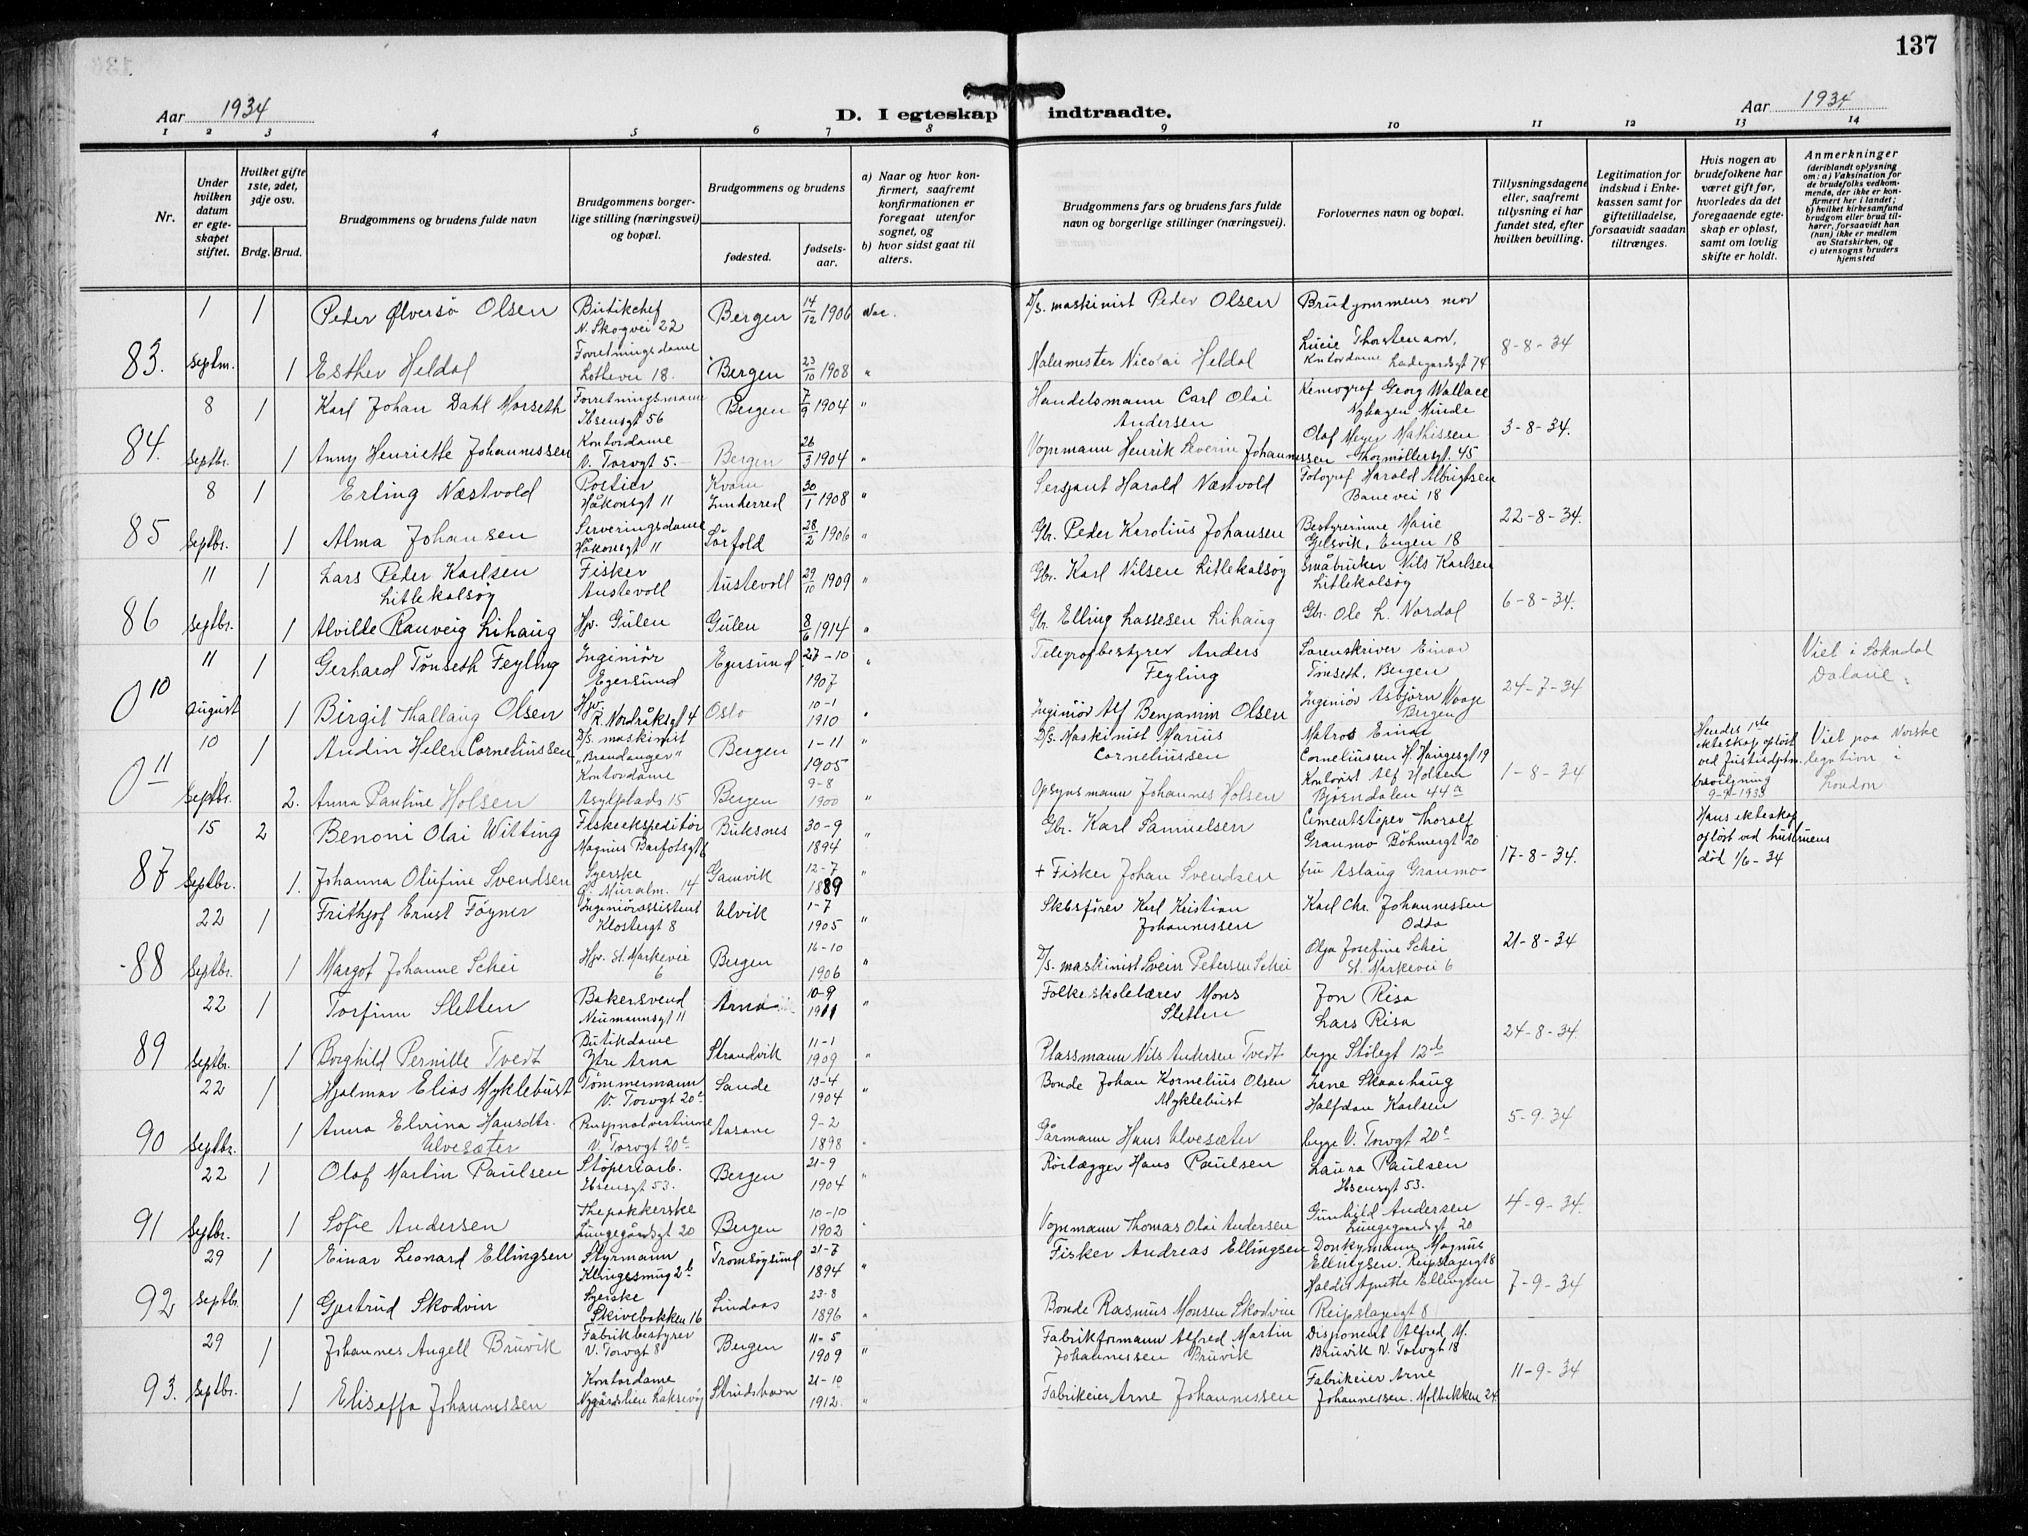 137
Aar 1934
D. I egteskap indtraadte.
Aar 1934
1 2 3 4 5 6 7 8 9 10 11 12 13 14
Nr.
Under hvilken datum er egteskapet stiftet.
Hvilket gifte 1ste, 2det, 3dje osv.
Brdg. Brud.
Brudgommens og brudens fulde navn
Brudgommens borgerlige stilling (næringsvei) og bopæl.
Brudgommens og brudens
fødested.
fødselsaar.
a) Naar og hvor konfirmert, saafremt konfirmationen er foregaat utenfor sognet, og
b) hvor sidst gaat til alters.
Brudgommens fars og brudens fars fulde navn og borgerlige stillinger (næringsvei).
Forlovernes navn og bopæl.
Tillysningsdagene eller, saafremt tillysning ei har fundet sted, efter hvilken bevilling.
Legitimation for indskud i Enkekassen samt for giftetilladelse, forsaavidt saadan tiltrænges.
Hvis nogen av brudefolkene har været gift før, hvorledes da det foregaaende egteskap er opløst, samt om lovlig skifte er holdt.
Anmerkninger
(deriblandt oplysning om: a) Vaksination for de brudefolks vedkommende, der ikke er konfirmert her i landet; b) hvilket kirkesamfund brudgom eller brud tilhører, forsaavidt han (hun) ikke er medlem av Statskirken, og c) utensogns bruders hjemsted
83. 1 Septm.
1 Peder Ølversø Olsen Butikchef N. Skogvei 22 Bergen 14/12 1906 Nei. D/s. maskinist Peder Olsen Brudgommens mor
1 Esther Heldal Forretningsdame Lothevei 18. Bergen 23/10 1908 " Malermester Nicolai Heldal Lucie Thorstensen, Kontordame Ladegårdsgt 74 8-8-34
84. 8 Septbr.
1 Karl Johan Dahl Morseth Forretningsmann Ibsensgt 56 Bergen 7/9 1904 " Handelsmann Carl Olai Andersen Kemograf Georg Wallace Nyhagen Minde
1 Anny Henriette Johannessen Kontordame V. Torvgt 5. Bergen 26/3 1904 " Vognmann Henrik Severin Johannessen Olaf Meyer Mathissen Thormøllersgt. 45 3-8-34.
85 8 Septbr.
1 Erling Næstvold Portier Håkonsgt 11 Kvam Inderred 30/1 1908 " Sersjant Harald Næstvold Fotograf Harald Albrigtsen Banevei 18
1 Alma Johansen Serveringsdame Håkonsgt 11 Sørfold 28/2 1906 " Gbr. Peder Karolius Johansen Bestyrerinne Marie Gjelsvik, Engen 18 22-8-34.
86 11 Septbr.
1 Lars Peder Karlsen Litlekalsøy Fisker Austevoll Austevoll 29/10 1909 " Gbr. Karl Nilsen Litlekalsøy Småbruker Nils Karlsen Litlekalsøy
1 Alvilde Ranveig Lihaug Hjv. Gulen Gulen 8/6 1914 " Gbr. Elling Lassesen Lihaug Gbr. Ole L. Nordal 6-8-34.
0 10 11 August
1 Gerhard Tønseth Feyling Ingeniør Egersund Egersund 27-10 1907 " Telegrafbestyrer Anders Feyling Sorenskriver Einar Tønseth, Bergen Viet i Sokndal Dalane.
1 Birgit Thallaug Olsen Hjv. R. Nordråksgt 4 Oslo 10-1 1910 " Ingeniør Alf Benjamin Olsen Ingeniør Asbjørn Waage Bergen 24-7-34
0 11 10 Septbr.
1 Audin Helen Corneliussen D/s. maskinist "Brandanger" Bergen 1-11 1905 " D/s. Maskinist Marius Corneliussen Matros Einar Corneliussen H. Haugesgt 19 Hendes 1ste ekteskap opløst ved Justisdptm. bevilgning 9-9-1933 Viet paa Norske legation i London
2. Anna Pauline Holsen Kontordame Asylplads 15 Bergen 9-8 1900 " Opsynsmann Johannes Holsen Kontorist Alf Holsen Bjørndalen 44a 1-8-34
87 15 Septbr.
2 Benoni Olai Witting Fiskeekspeditør Magnus Barfotsgt 6 Buksnes 30-9 1894 " Gbr. Karl Samuelsen Cementstøper Thoralf Granmo Böhmergt 20 Hans ekteskap opløst ved hustruens død 1/6-34
1. Johanna Olufine Svendsen Syerske Ø. Muralm. 14 Gamvik 12-7 1889 " + Fisker Johan Svendsen fru Aslaug Granmo 17-8-34.
88 22 Septbr.
1 Frithjof Ernst Føyner Ingeniørassistent Klostergt 8 Ulvik 1-7 1905 " Skibsfører Karl Kristian Johannessen Karl Chr. Johannessen Odda
1 Margot Johanne Schei Hjv. St. Markevei 6 Bergen 16-10 1906 " D/s. maskinist Svein Petersen Schei Olga Josefine Schei St. Markevei 6 21-8-34
89 22 Septbr.
1 Torfinn Sletten Bakersvend Neumannsgt 11 Arna 10-9 1911 " Folkeskolelærer Mons Sletten Jon Risa
1 Borghild Pernille Tvedt Butikdame Ytre Arna Strandvik 11-1 1909 " Plassmann Nils Andersen Tvedt Lars Risa begge Stølegt 12b 24-8-34.
90 22 Septbr.
1 Hjalmar Elias Myklebust Tømmermann V. Torvgt 20c Sande 13-4 1904 " Bonde Johan Kornelius Olsen Myklebust Lene Skaarhaug
1 Anna Elvina Hansdtr. Ulvesæter V. Torvgt 20c Aasane 9-2 1898 " Gårmann Hans Ulvesæter Halfdan Karlsen begge V. Torvgt 20c 5-9-34
91 22 Septbr.
1 Olaf Martin Paulsen Støperiarb. Ibsensgt 53. Bergen 21-9 1904 " Rørlægger Hans Paulsen Laura Paulsen Ibsensgt 53.
1 Sofie Andersen Thepakkerske Lungegårdsgt 20 Bergen 10-10 1902 " Vognmann Thomas Olai Andersen Gunhild Andersen Lungegaardsgt 20 4-9-34.
92 29 Septbr.
1 Einar Leonard Ellingsen Styrmann Klingesmug 2b Tromsøysund 21-7 1894 " Fisker Andreas Ellingsen Donkymann Magnus Ellingsen. Reipslagergt 8
1 Gjertrud Skodvin Syerske Skivebakken 16 Lindaas 23-8 1896 " Bonde Rasmus Monsen Skodvin Haldis Agnethe Ellingsen Reipslagergt 8 7-9-34
93. 29 Septbr.
1 Johannes Angell Bruvik Fabrikbestyrer V. Torvgt 8 Bergen 11-5 1909 " Fabrikformann Alfred Martin Johannessen Bruvik Disponent Alfred M. Bruvik V. Torvgt 18
1 Elisaffa Johannessen Kontordame Nygårdslien Laksevåg Strudshavn 21-10 1912. " Fabrikeier Arne Johannessen Fabrikeier Arne Johannessen. Molbekken 24 11-9-34